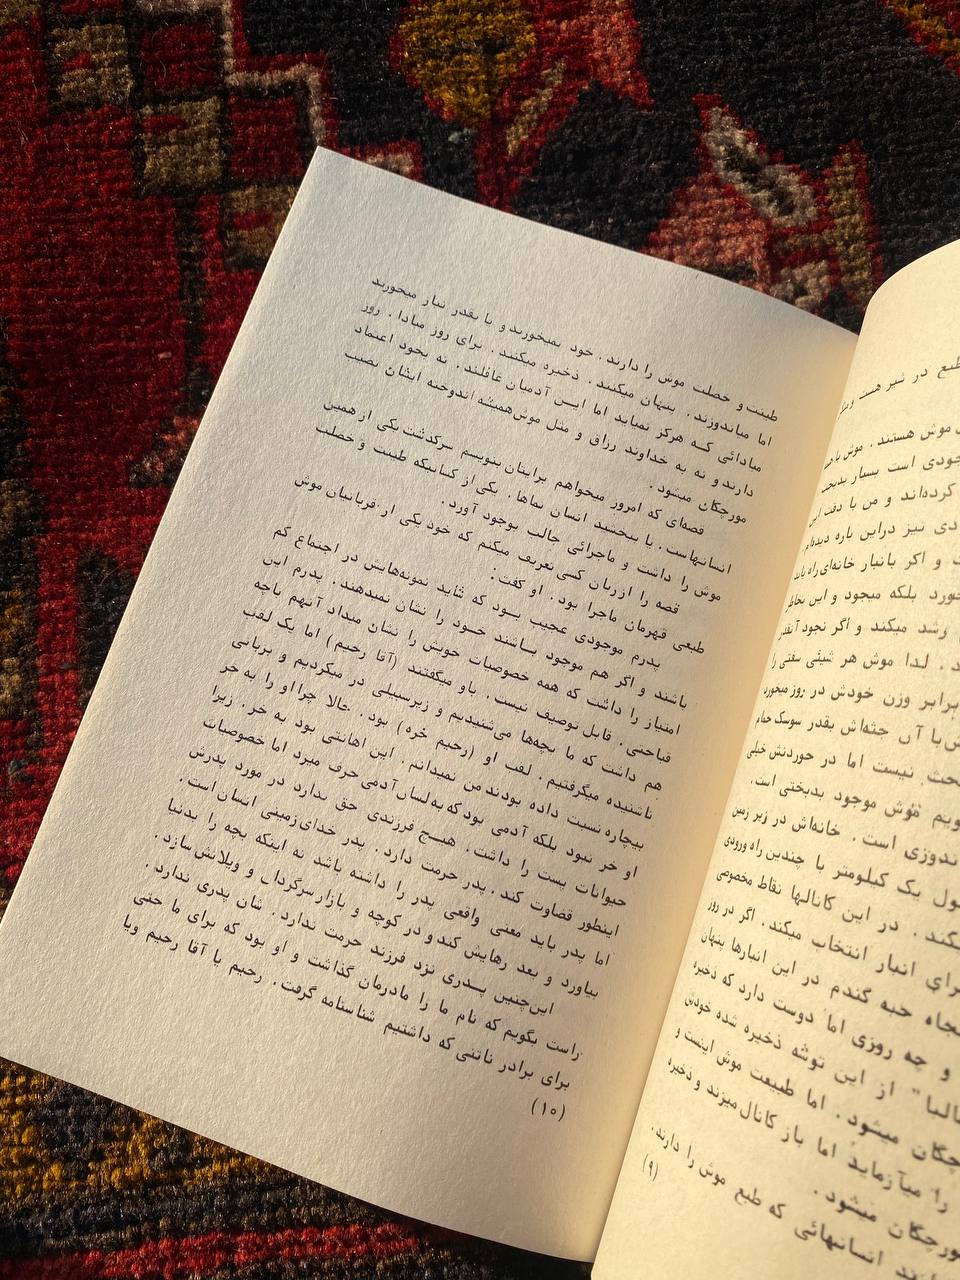 طبع در شیر هست و
موش هستند . موش
جودی است بسیار بدبخت
کرده‌اند و من با دقت این
دی نیز دراین باره دیده‌ام
و اگر بانبار خانه‌ای راه یابد
خورد بلکه میجود و این بخاطر
رشد میکند و اگر نجود آنقدر
. لذا موش هر شیئی سفتی را
برابر وزن خودش در روز میخورد
با آن جثه‌اش بقدر سوسک حمام
نیست اما در خوردنش خیلی
موش موجود بدبختی است .
ندوزی است . خانه‌اش در زیر زمین
ول یک کیلومتر با چندین راه ورودی
یکند . در این کانالها نقاط مخصوصی
رای انبار انتخاب میکند . اگر در روز
نجاه حبه گندم در این انبارها پنهان
و چه روزی اما دوست دارد که ذخیره
از این توشه ذخیره شده خودش
میشود . اما طبیعت موش اینست و
را میآزماید اما باز کانال میزند و ذخیره
میشود .
انسانهائی که طبع موش را دارند .
(۹)
طینت و خصلت موش را دارند . خود نمیخورند و یا بقدر نیاز میخورند
اما میاندوزند . پنهان میکنند . ذخیره میکنند . برای روز مبادا . روز
مبادائی که هرگز نمیاید اما این آدمیان غافلند . نه بخود اعتماد
دارند و نه به خداوند رزاق و مثل موش همیشه اندوخته ایشان نصیب
مورچگان میشود .
قصه‌ای که امروز میخواهم برایتان بنویسم سرگذشت یکی از همین
انسانهاست . یا ببخشید انسان نماها . یکی از کسانیکه طینت و خصلت
موش را داشت و ماجرائی جالب بوجود آورد .
قصه را از زبان کسی تعریف میکنم که خود یکی از قربانیان موش
طبعی قهرمان ماجرا بود . او گفت :
پدرم موجودی عجیب بود که شاید نمونه‌هایش در اجتماع کم
باشند و اگر هم موجود باشند خود را نشان نمیدهند . پدرم این
امتیاز را داشت که همه خصوصیات خویش را نشان میداد آنهم باچه
قباحتی . قابل توصیف نیست . باو میگفتند (آقا رحیم) اما یک لقب
هم داشت که ما بچه‌ها می‌شنیدیم و زیرسبیلی در میکردیم و بربانی
ناشنیده میگرفتیم . لقب او (رحیم خره) بود . حالا چرا او را به خر
بیچاره نسبت داده بودند من نمیدانم . این اهانتی بود به خر . زیرا
او خر نبود بلکه آدمی بود که به‌لسان آدمی حرف میزد اما خصوصیات
حیوانات پست را داشت . هیچ فرزندی حق ندارد در مورد پدرش
اینطور قضاوت کند . پدر حرمت دارد . پدر خدای زمینی انسان است .
اما پدر باید معنی واقعی پدر را داشته باشد نه اینکه بچه را بدنیا
بیاورد و بعد رهایش کند و در کوچه و بازار سرگردان و ویلانش سازد .
این‌چنین پدری نزد فرزند حرمت ندارد . شان پدری ندارد .
راست بگویم که نام ما را مادرمان گذاشت و او بود که برای ما حتی
برای برادر ناتنی که داشتیم شناسنامه گرفت . رحیم یا آقا رحیم ویا
(۱۰)